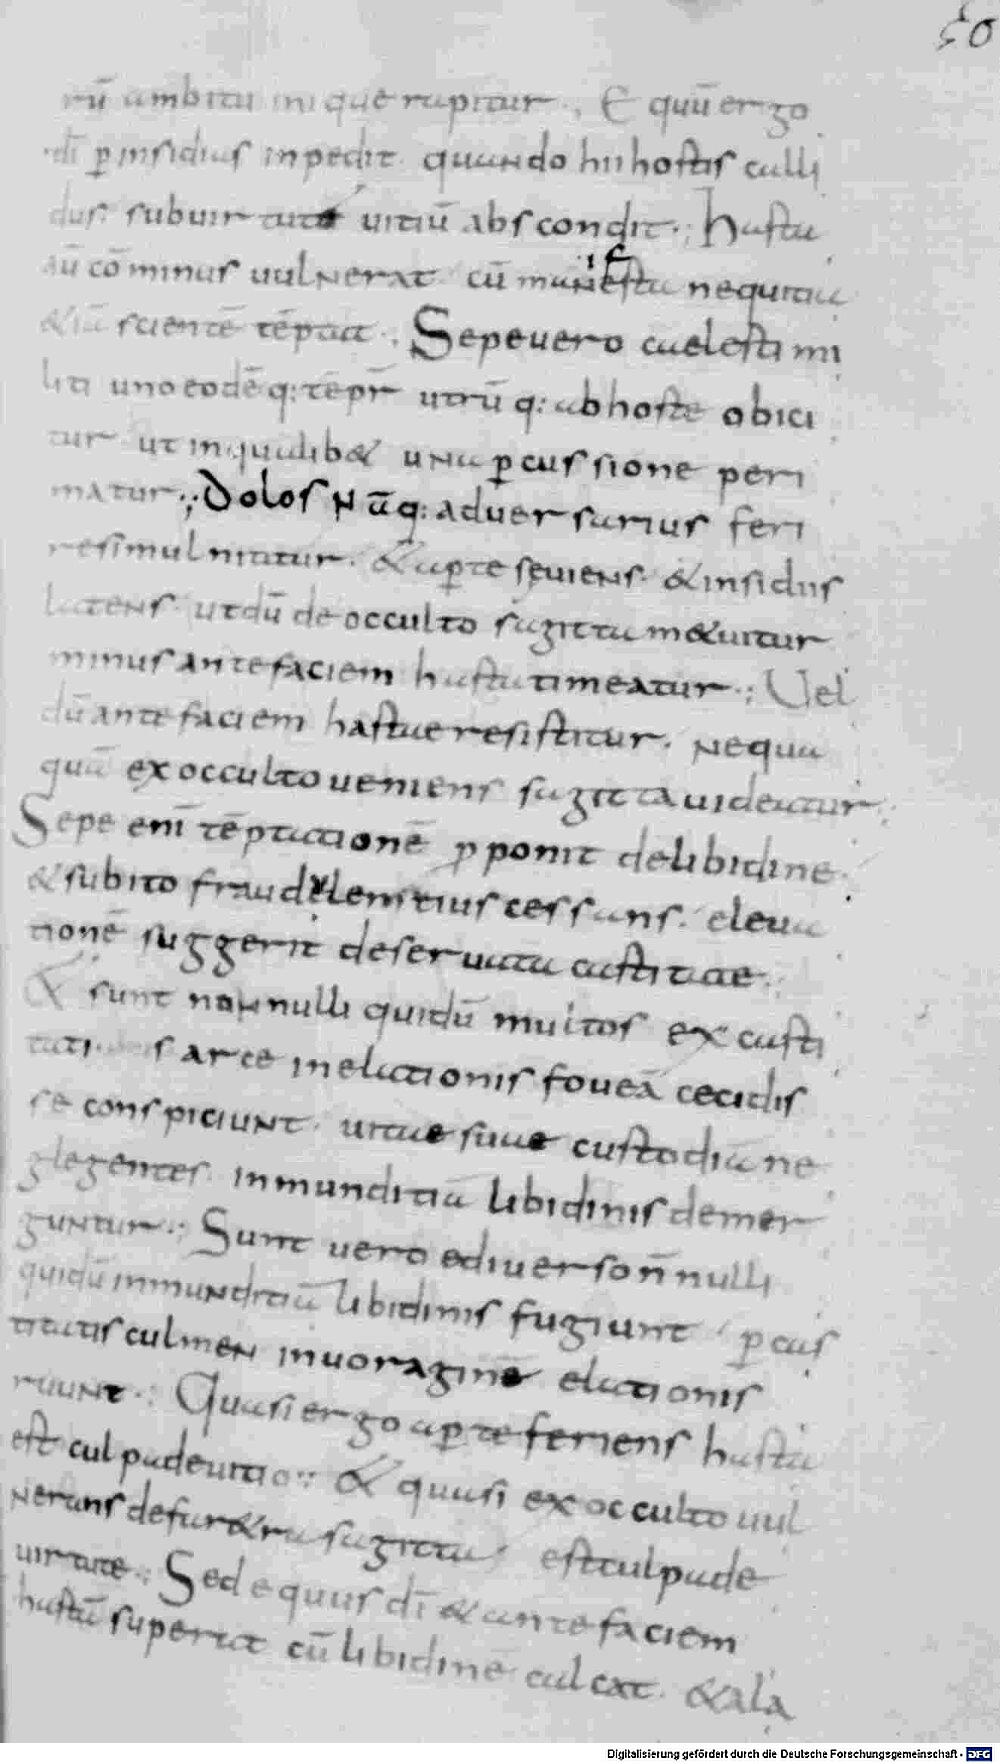 50
rū ambitu inique rapitur. Equū ergo
dī p̄ insidias inpedit. quando hii hostis calli
dus sub uirtute uitiū abscondit.; Hasta
aū cōminus uulnerat. cū manifesta nequitia
&iā scientē tēptat.; Sepe uero caelesti mi
liti uno eodēq: tēpr̄ utrūq: ab hoste obici
tur ut in qualib& una p̄cussione peri
matur.; Dolos nāq: aduersarius feri
re simul nititur. & ap̄te sęuiens. & insidiis
latens. ut dū de occulto sagitta m&uitur
minus ante faciem hasta timeatur.; Uel
dū ante faciem hastae resistitur. nequa
quā ex occulto ueniens sagitta uideatur.
Sepe enī tēptationē p̄ponit de libidine.
& subito fraudulentius cessans. eleua
tionē suggerit de seruata castitate.
& sunt nonnulli qui dū multos ex casti
tatis arce in elationis foueā cecidis
se conspiciunt. uitae suae custodiā ne
glegentes. in munditiā libidinis demer
guntur.; Sunt uero e diuerso nn̄nulli
qui dū inmunditiā libidinis fugiunt. p̄ cas
titatis culmen in uoraginē elationis
ruunt.; Quasi ergo ap̄te feriens hasta
est culpa de uitio.; & quasi ex occulto uul
nerans de far&ra sagitta. est culpa de
uirtute.; Sed equus dī & ante faciem
hastā superat cū libidinē calcat. & a la
Digitalisierung gefördert durch die Deutsche Forschungsgemeinschaft - DFG